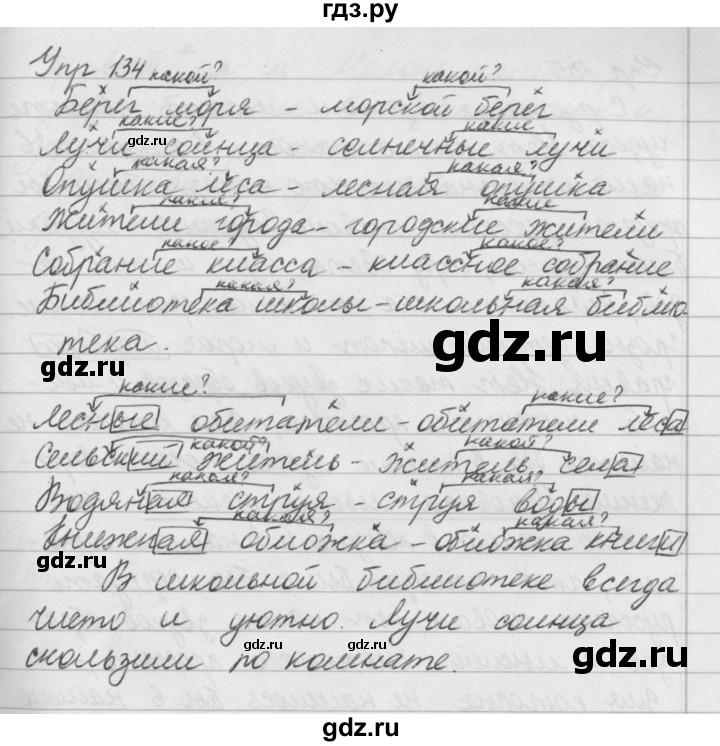 гдз.ру
Упр 134 какой? какой?
Берег моря – морской берег
какие? какие
Лучи солнца – солнечные лучи
какая? какая?
Опушка леса – лесная опушка
какие? какие
Жители города – городские жители
какое? какое?
Собрание класса – классное собрание
какая? какая?
Библиотека школы – школьная библио-
тека.
какие? какие?
Лесные обитатели – обитатели леса
какой? какой?
Сельский житель – житель села
какая? какая?
Водяная струя – струя воды
какая? какая?
Книжная обложка – обложка книги
В школьной библиотеке всегда
чисто и уютно. Лучи солнца
скользили по комнате.
gdz.ru
gdz.ru
gdz.ru
gdz.ru
gdz.ru
gdz.ru
gdz.ru
gdz.ru
gdz.ru
gdz.ru
gdz.ru